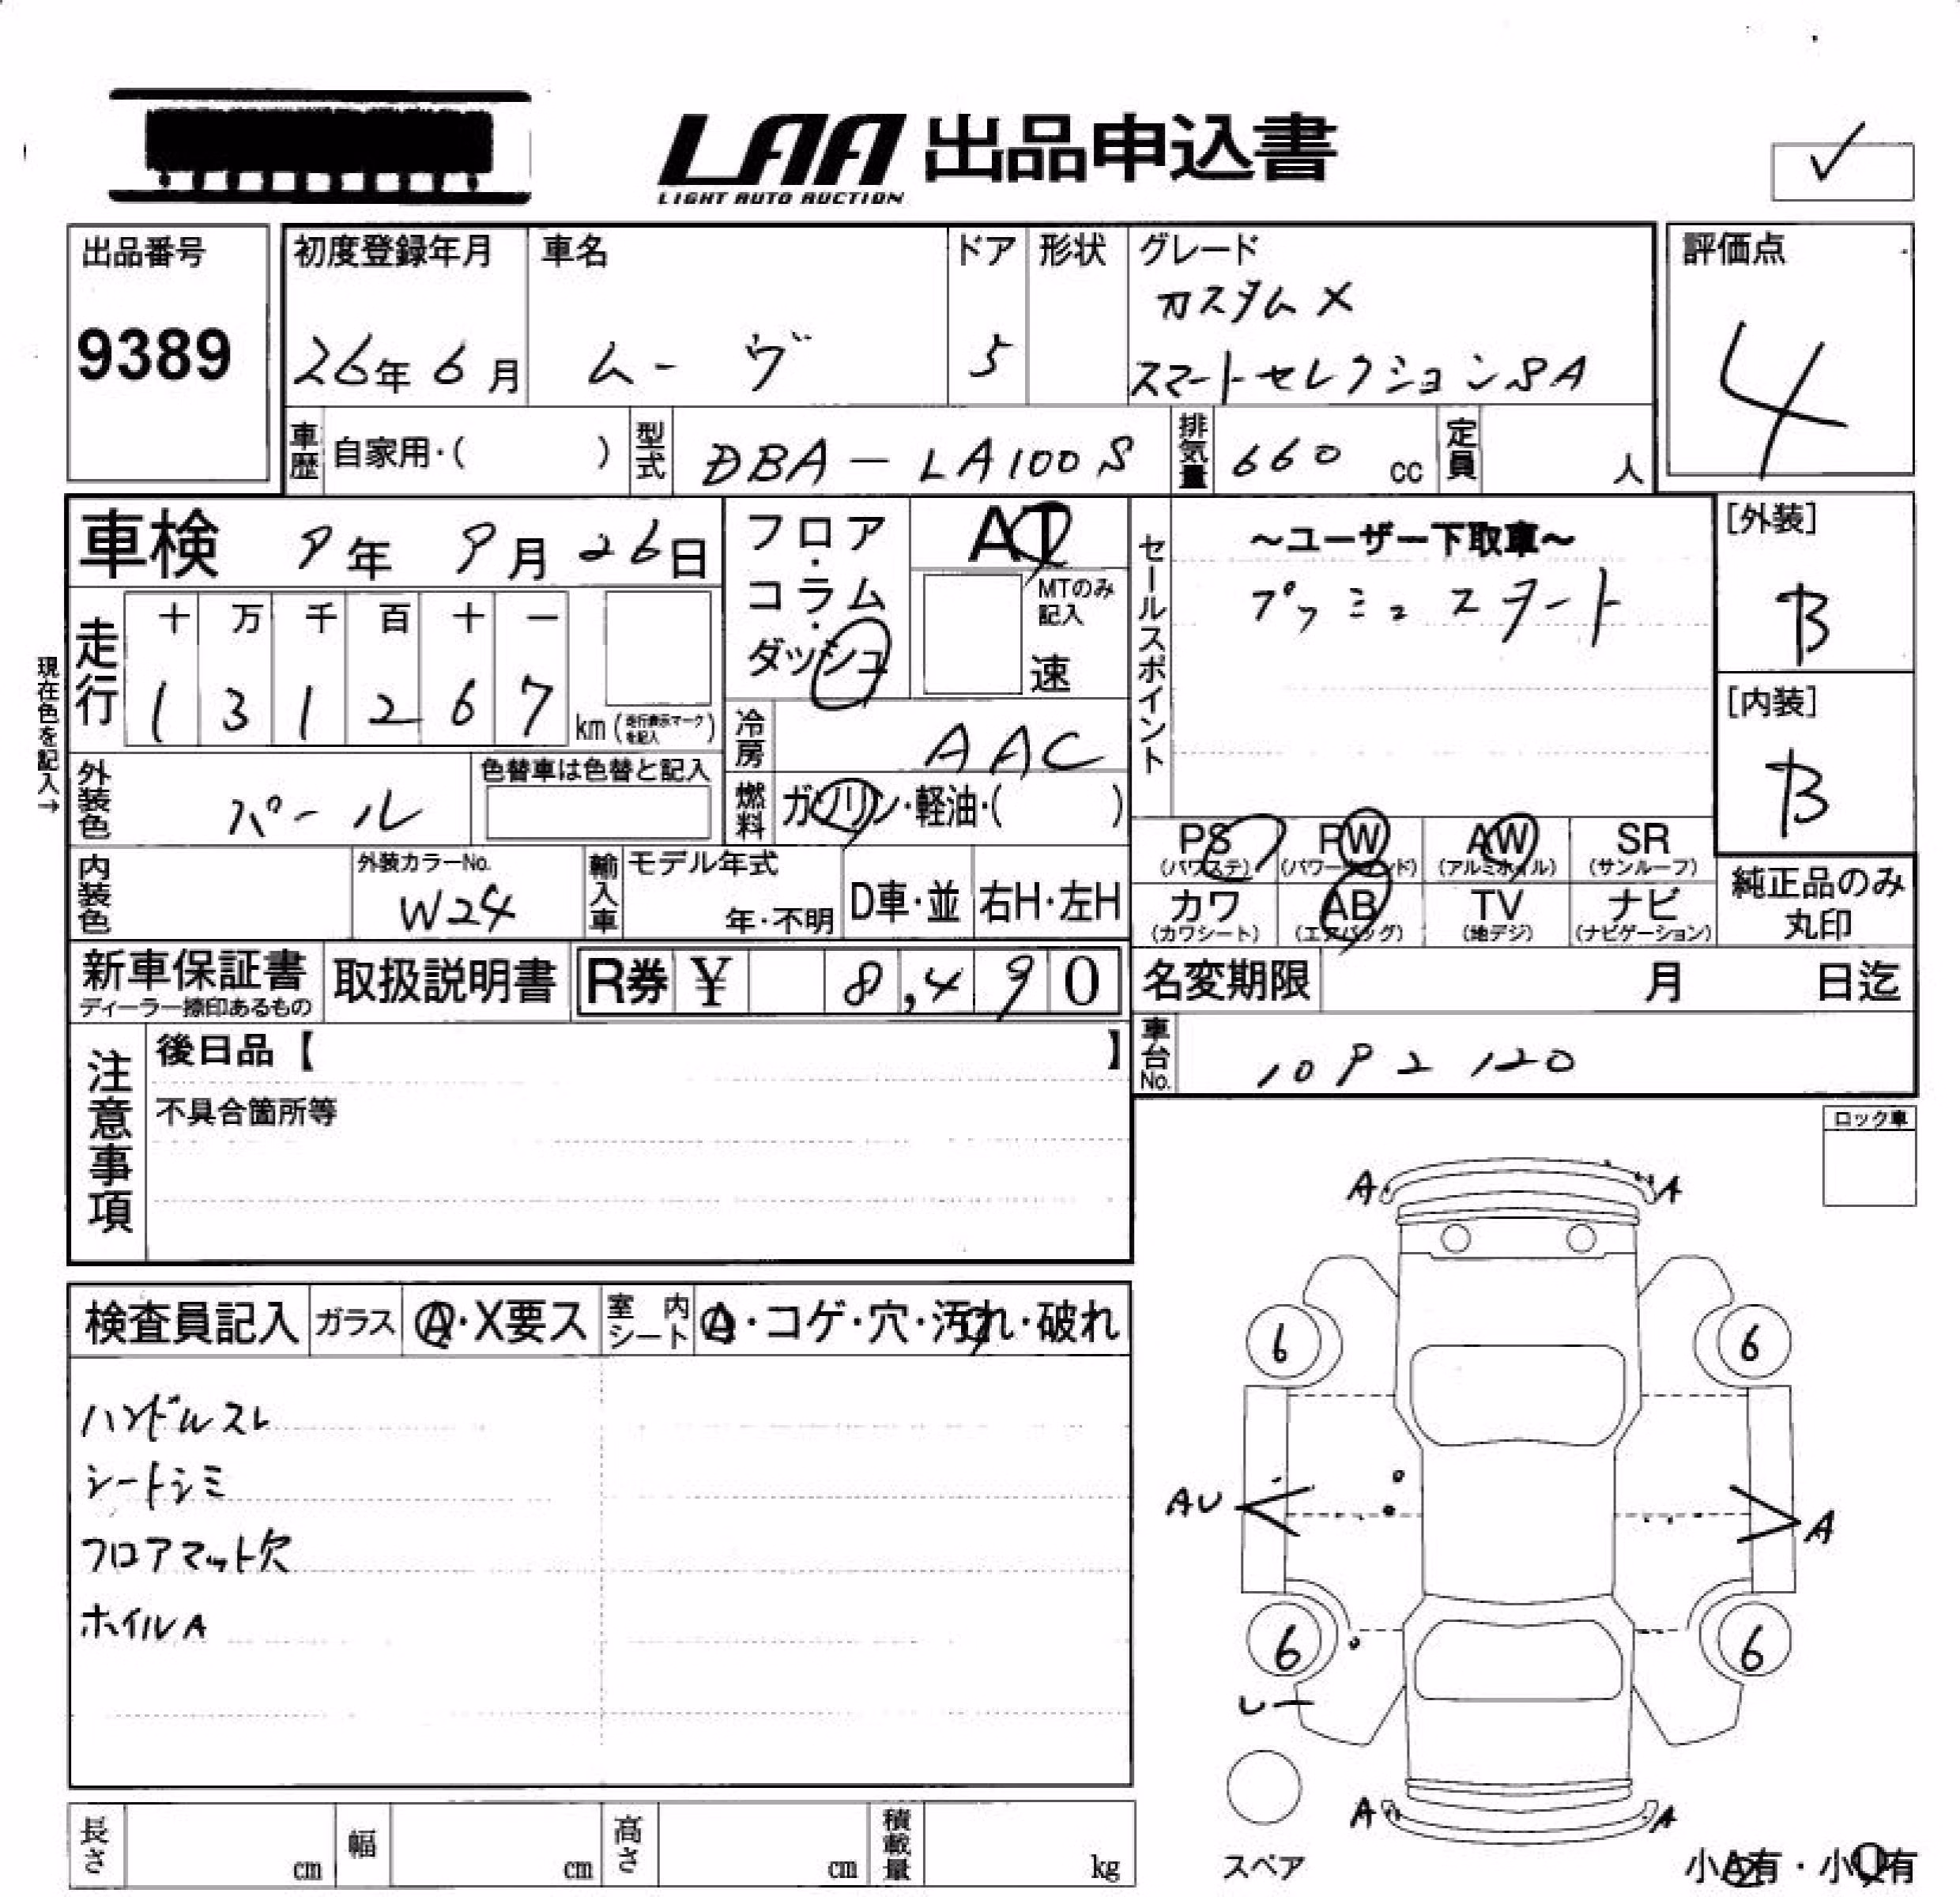 LAA 出品申込書
LIGHT AUTO AUCTION
出品番号
9389
初度登録年月
26年6月
車名
ムーヴ
ドア
5
形状
グレード
カスタムX
スマートセレクションSA
評価点
4
車歴 自家用・( )
型式 DBA-LA100S
排気量 660 cc
定員 人
車検 9年9月26日
フロア・コラム・ダッシュ
AT
MTのみ記入
速
セールスポイント
~ユーザー下取車~
プッシュスタート
[外装]
B
[内装]
B
現在色を記入→
走行
十 万 千 百 十 一
1 3 1 2 6 7 km (走行表示マークを記入)
冷房 AAC
外装色 パール
色替車は色替と記入
燃料 ガソリン・軽油・( )
内装色
外装カラーNo.
W24
輸入車
モデル年式
年・不明
D車・並
右H・左H
PS (パワステ)
PW (パワーウインド)
AW (アルミホイル)
SR (サンルーフ)
カワ (カワシート)
AB (エアバッグ)
TV (地デジ)
ナビ (ナビゲーション)
純正品のみ丸印
新車保証書
ディーラー捺印あるもの
取扱説明書
R券 ¥ 8,490
名変期限 月 日迄
注意事項
後日品【 】
不具合箇所等
車台No. 1092120
ロック車
検査員記入
ガラス Ⓐ・X要ス
室内シート Ⓐ・コゲ・穴・汚れ・破れ
ハンドルスレ
シートシミ
フロアマット欠
ホイルA
A A
6 6
AU A
6 6
A A
スペア
長さ cm
幅 cm
高さ cm
積載量 kg
小A有・小U有